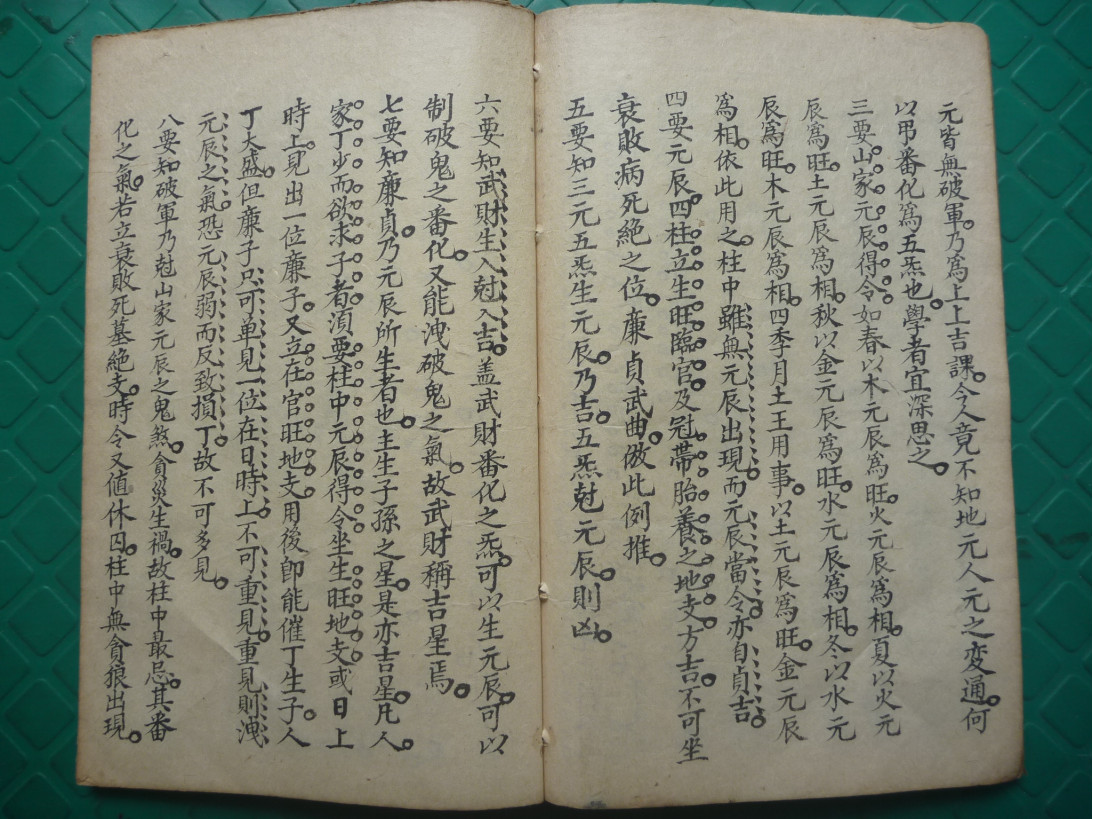 元皆無破軍。乃爲上上吉課。今人竟不知地元人元之変通。何
以弔番化爲五炁也。學者宜深思之。
三要山家元辰得令。如春以木元辰爲旺。火元辰爲相。夏以火元
辰爲旺。土元辰爲相。秋以金元辰爲旺。水元辰爲相。冬以水元
辰爲旺。木元辰爲相。四季月土王用事。以土元辰爲旺。金元辰
爲相。依此用之。柱中雖無元辰出現。而元辰當令。亦自貞吉。
四要元辰。四柱立生旺臨官及冠帶胎養之地支方吉。不可坐
衰敗病死絶之位。亷貞武曲。倣此例推。
五要知三元五炁生元辰。乃吉。五炁尅元辰。則凶。
六要知武財生入尅入吉。盖武財番化之炁。可以生元辰。可以
制破鬼之番化。又能洩破鬼之氣。故武財稱吉星焉。
七要知亷貞。乃元辰所生者也。主生子孫之星。是亦吉星。凡人
家丁少而欲求子者。須要柱中元辰得令。坐生旺地支。或日上
時上。見出一位亷子。又立在官旺地支。用後卽能催丁生子。人
丁大盛。但亷子只可单見一位在日時上。不可重見。重見則洩
元辰之氣。恐元辰弱而反致損丁。故不可多見。
八要知破軍乃尅山家元辰之鬼煞。貪災生禍。故柱中最忌。其番
化之氣。若立衰敗死墓絶支。時令又値休囚。柱中無貪狼出現。